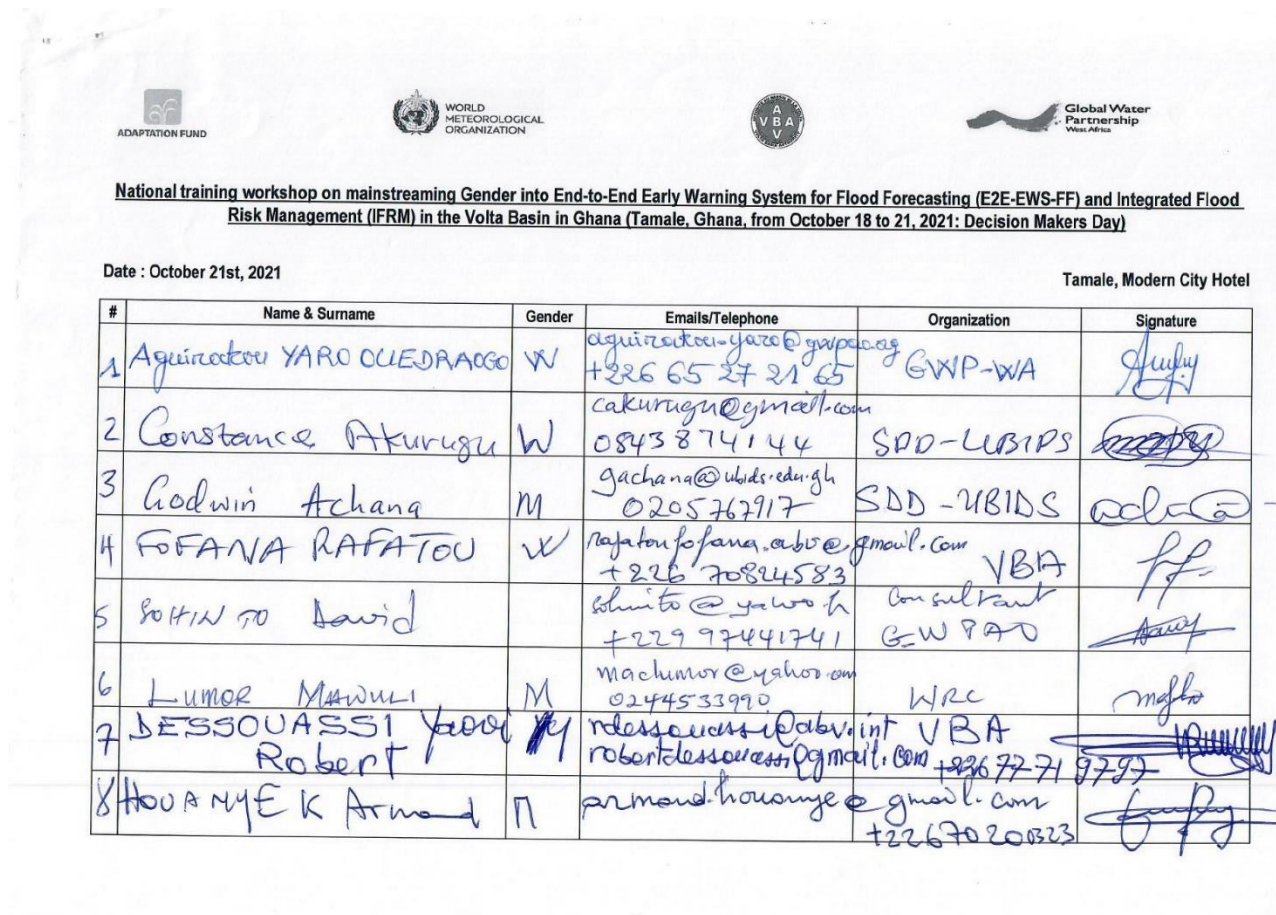 ADAPTATION FUND
WORLD
METEOROLOGICAL
ORGANIZATION
A
VBA
V
Global Water
Partnership
West Africa
National training workshop on mainstreaming Gender into End-to-End Early Warning System for Flood Forecasting (E2E-EWS-FF) and Integrated Flood
Risk Management (IFRM) in the Volta Basin in Ghana (Tamale, Ghana, from October 18 to 21, 2021: Decision Makers Day)
Date : October 21st, 2021
Tamale, Modern City Hotel
# Name & Surname Gender Emails/Telephone Organization Signature
1 Aguiratou YARO OUEDRAOGO W GWP-WA
+226 65 27 21 65
cakurugu@gmail.com
2 Constance Akurugu W 0843874144 SDD-UBIDS
gachana@ubids.edu.gh
3 Godwin Achana M 0205767917 SDD-UBIDS
4 FOFANA RAFATOU W rafatoufofana.abv@gmail.com
+226 70824583 VBA
Consultant
5 SOHINTO David +229 97441741 GWPAO
maclumor@yahoo.com
6 LUMOR MAWULI M 0244533990 WRC
7 DESSOUASSI Yaovi M rdessouassi@abv.int VBA
Robert robertdessouassi@gmail.com +226 77-71 97-97
8 HOUANYE K Armand M armand.houanye@gmail.com
+22670200323